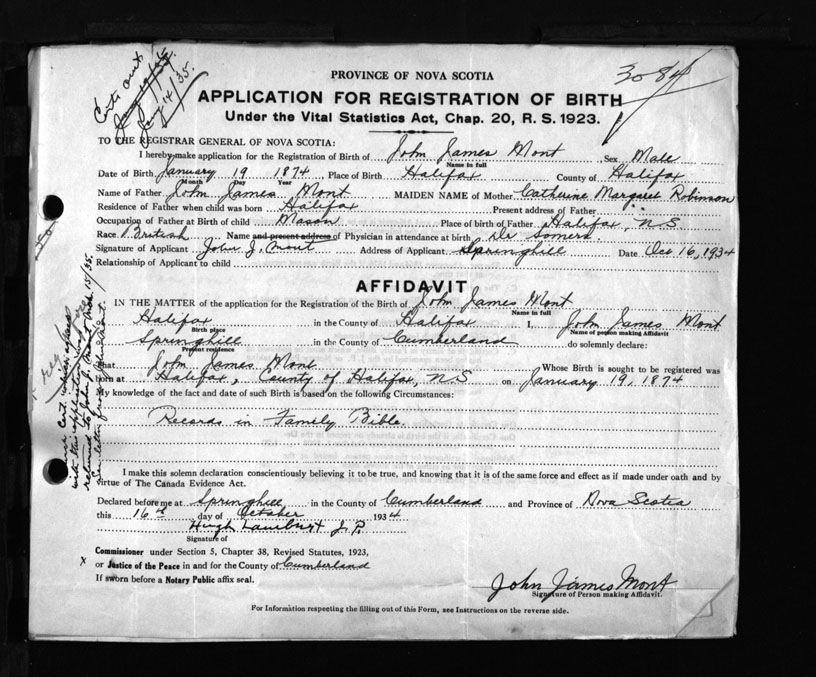 3084
Cert. out
Jany 14/35.
PROVINCE OF NOVA SCOTIA
APPLICATION FOR REGISTRATION OF BIRTH
Under the Vital Statistics Act, Chap. 20, R. S. 1923.
TO THE REGISTRAR GENERAL OF NOVA SCOTIA:
I hereby make application for the Registration of Birth of John James Mont Sex Male
Name in full
Date of Birth January 19 1874 Place of Birth Halifax County of Halifax
Month Day Year
Name of Father John James Mont MAIDEN NAME of Mother Catherine Margaret Robinson
Residence of Father when child was born Halifax Present address of Father
Occupation of Father at Birth of child Mason Place of birth of Father Halifax, N.S.
Race British Name and present address of Physician in attendance at birth Dr Somers
Signature of Applicant John J. Mont Address of Applicant Springhill Date Oct 16, 1934
Relationship of Applicant to child
AFFIDAVIT
IN THE MATTER of the application for the Registration of the Birth of John James Mont
Name in full
Halifax in the County of Halifax I, John James Mont
Birth place Name of person making Affidavit
Springhill in the County of Cumberland do solemnly declare:
Present residence
That John James Mont Whose Birth is sought to be registered was
born at Halifax, County of Halifax, N.S on January 19, 1874
My knowledge of the fact and date of such Birth is based on the following Circumstances:
Records in Family Bible.
I make this solemn declaration conscientiously believing it to be true, and knowing that it is of the same force and effect as if made under oath and by
virtue of The Canada Evidence Act.
Declared before me at Springhill in the County of Cumberland and Province of Nova Scotia
this 16th day of October 1934
Hugh J. P.
Signature of
Commissioner under Section 5, Chapter 38, Revised Statutes, 1923,
x or Justice of the Peace in and for the County of Cumberland
If sworn before a Notary Public affix seal.
John James Mont
Signature of Person making Affidavit.
For Information respecting the filling out of this Form, see Instructions on the reverse side.